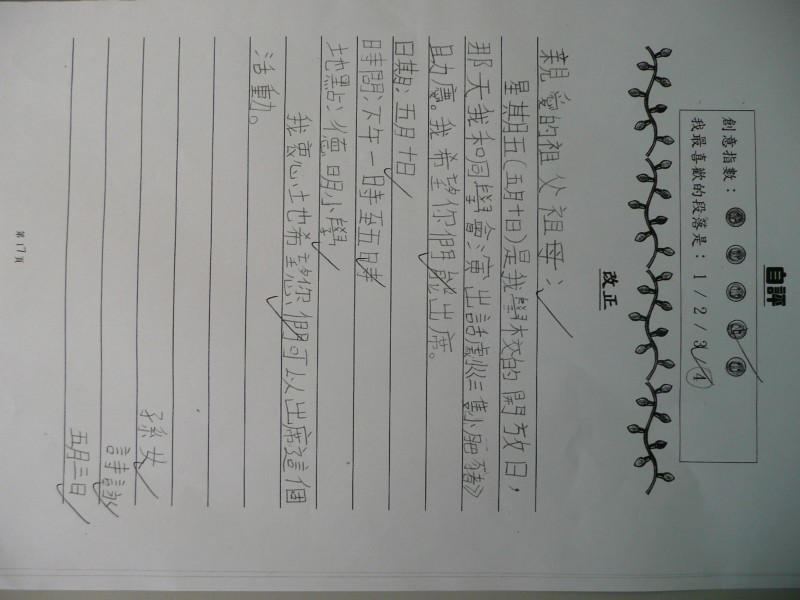 自評
創意指數：
我最喜歡的段落是：1 / 2 / 3 / 4
改正
親愛的祖父祖母：
星期五(五月十日)是我學校的開放日，
那天我和同學會演出話劇《三隻小肥豬》
助慶。我希望你們能出席。
日期：五月十日
時間：下午一時至五時
地點：德明小學
我衷心地希望您們可以出席這個
活動。
孫女
詩詠
五月三日
第17頁